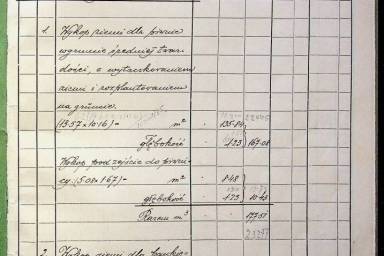 1. Wykop ziemi dla piwnic
w gruncie średniej twar-
dości, z wytaczkowaniem
ziemi i rozplantowaniem
na gruncie.
(13.57 × 10.16) = m² 135.84
głębokość 1.23 167.08
Wykop pod zejście do piwni-
cy: (5.08 × 1.67) = m² 8.48
głębokość 1.23 10.43
Razem m³ 177.51
2. Wykop ziemi dla